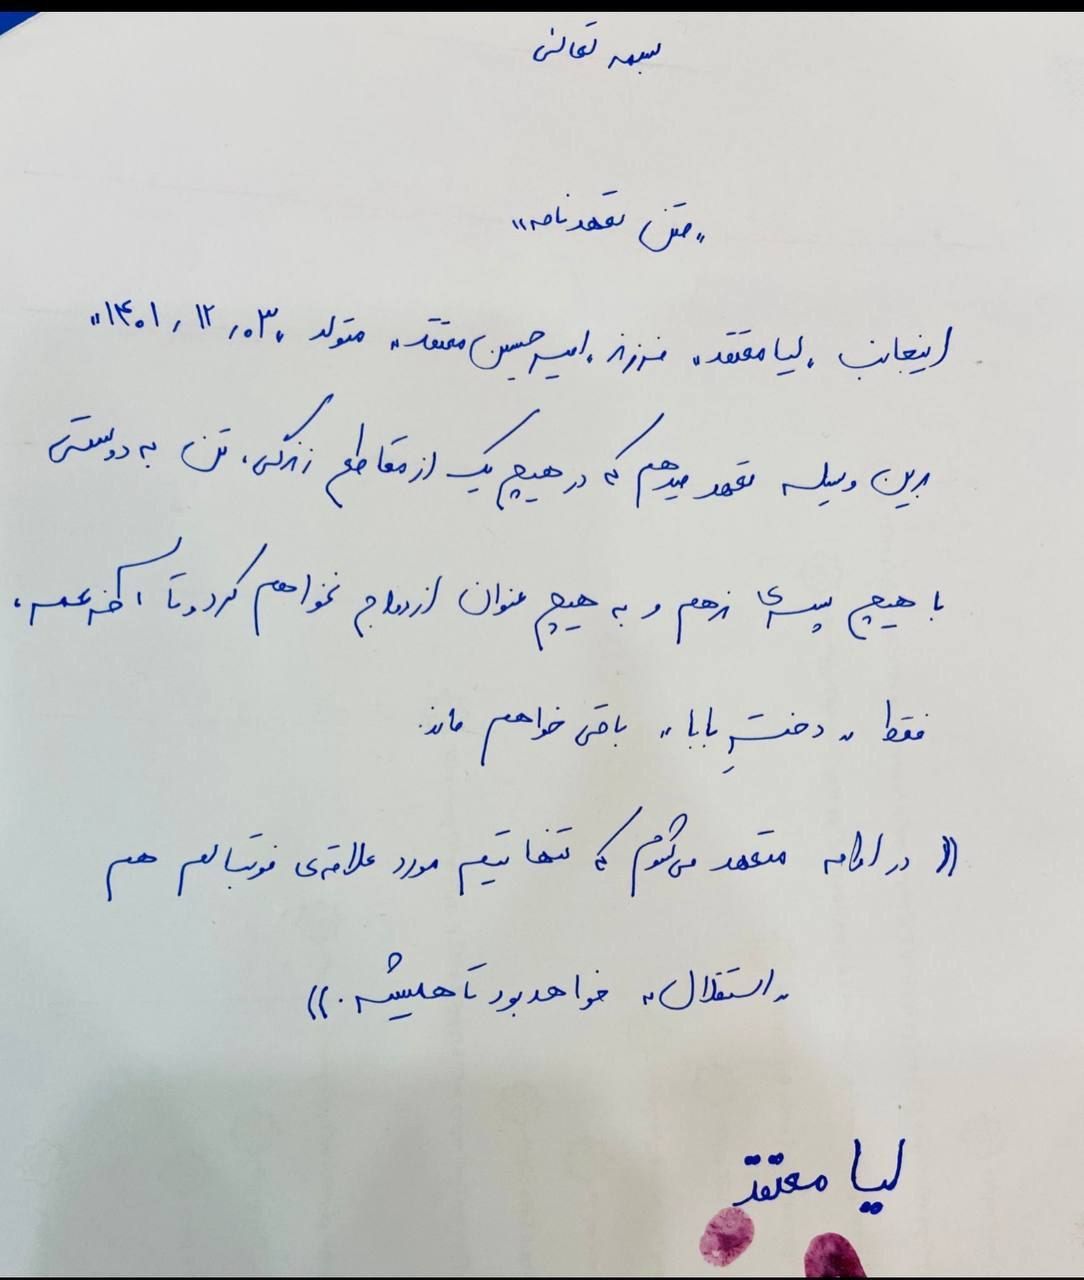 بسمه تعالی
"متن تعهدنامه"
اینجانب "لیا معتقد" فرزند "امیرحسین معتقد" متولد "۱۴۰۱/۱۲/۰۳"
بدین وسیله تعهد میدهم که در هیچ یک از مقاطع زندگی، تن به دوستی
با هیچ پسری ندهم و به هیچ عنوان ازدواج نخواهم کرد و تا آخر عمر،
فقط "دخترِ بابا" باقی خواهم ماند.
(( در ادامه متعهد می‌شوم که تنها تیم مورد علاقه‌ی فوتبالم هم
"استقلال" خواهد بود تا همیشه.))
لیا معتقد